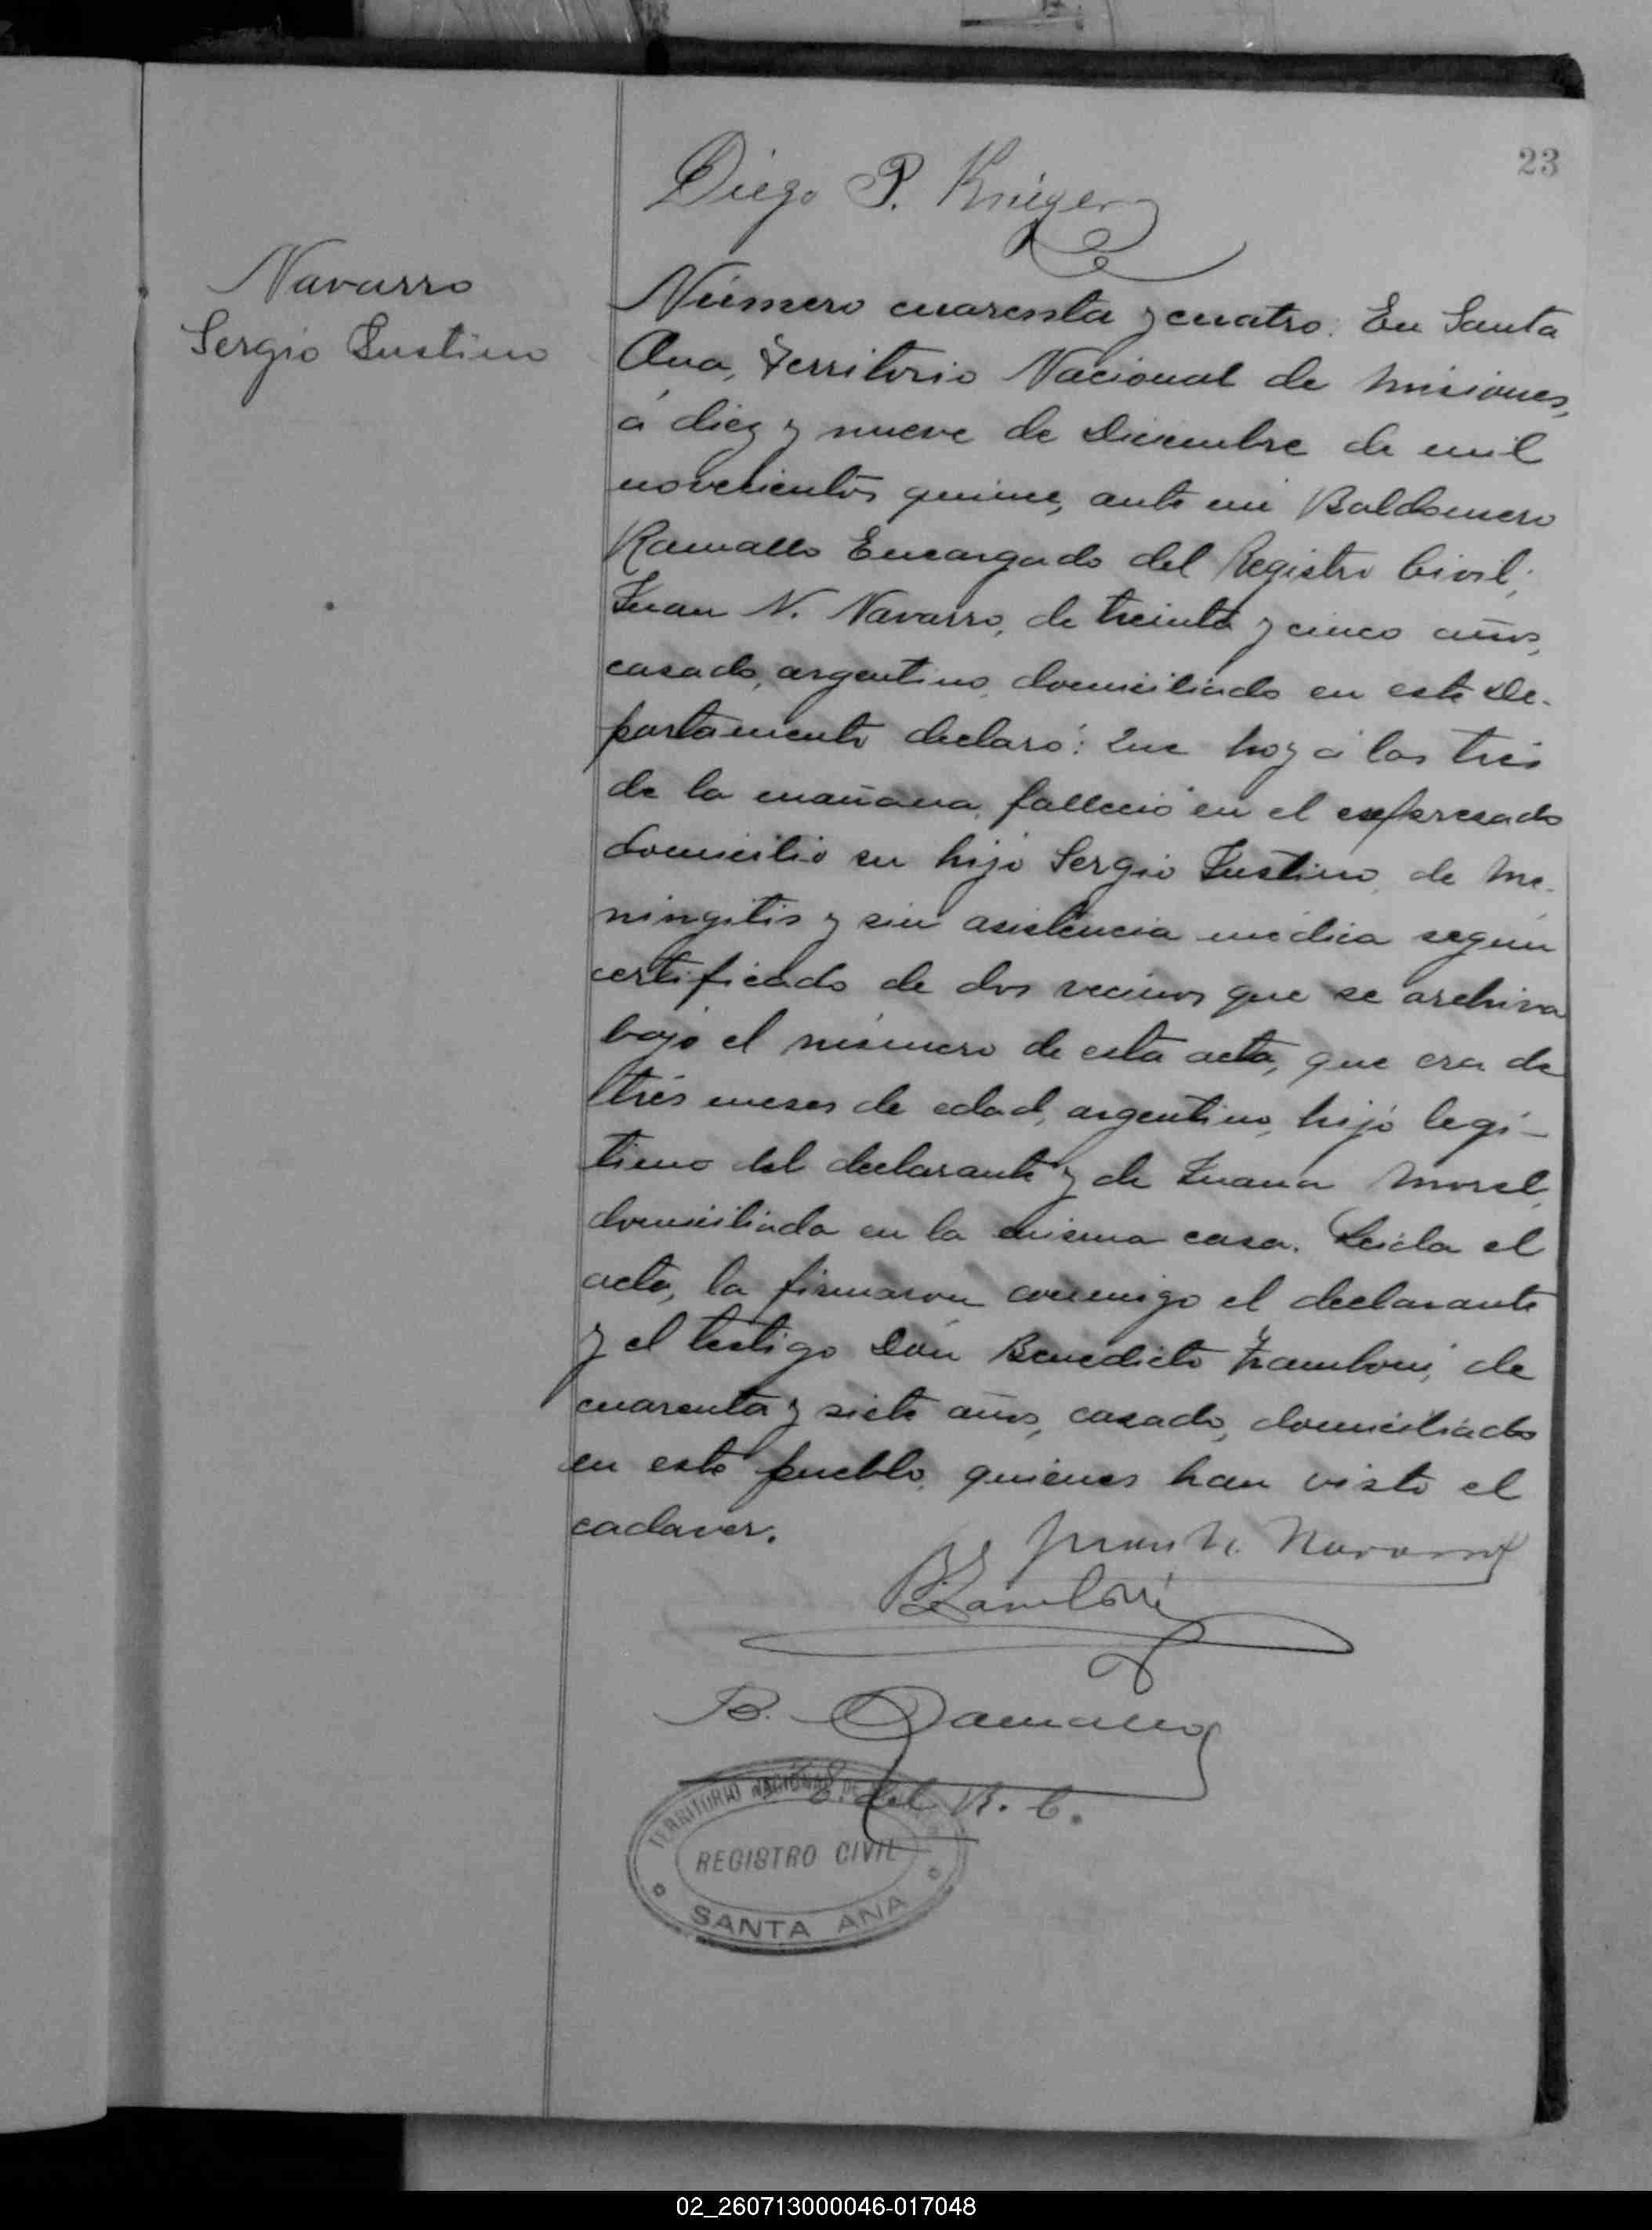 23
Diego P. Krieger
Navarro
Sergio Justino
Número cuarenta y cuatro. En Santa
Ana, Territorio Nacional de Misiones,
á diez y nueve de Diciembre de mil
novecientos quince, ante mi Baldomero
Ramallo Encargado del Registro Civil;
Juan N. Navarro, de treinta y cinco años,
casado, argentino, domiciliado en este De-
partamento declaró: Que hoy á las tres
de la mañana, falleció en el expresado
domicilio su hijo Sergio Justino, de me-
ningitis y sin asistencia médica según
certificado de dos vecinos que se archiva
bajo el número de esta acta, que era de
trés meses de edad, argentino, hijo legí-
timo del declarante y de Juana Morel,
domiciliada en la misma casa. Leida el
acta, la firmaron conmigo el declarante
y el testigo Don Benedicto Zamboni, de
cuarenta y siete años, casado, domiciliado
en este pueblo, quienes han visto el
cadaver.
Juan N. Navarro
B. Zamboni
B. Ramallo
E. del R. C.
TERRITORIO NACIONAL DE
REGISTRO CIVIL
SANTA ANA
02_260713000046-017048